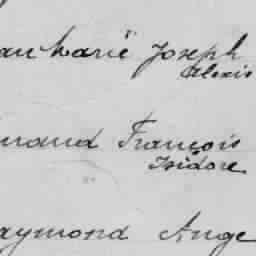 an Marië Joseph
Alexis
mand François
Isidore
aymond Ange